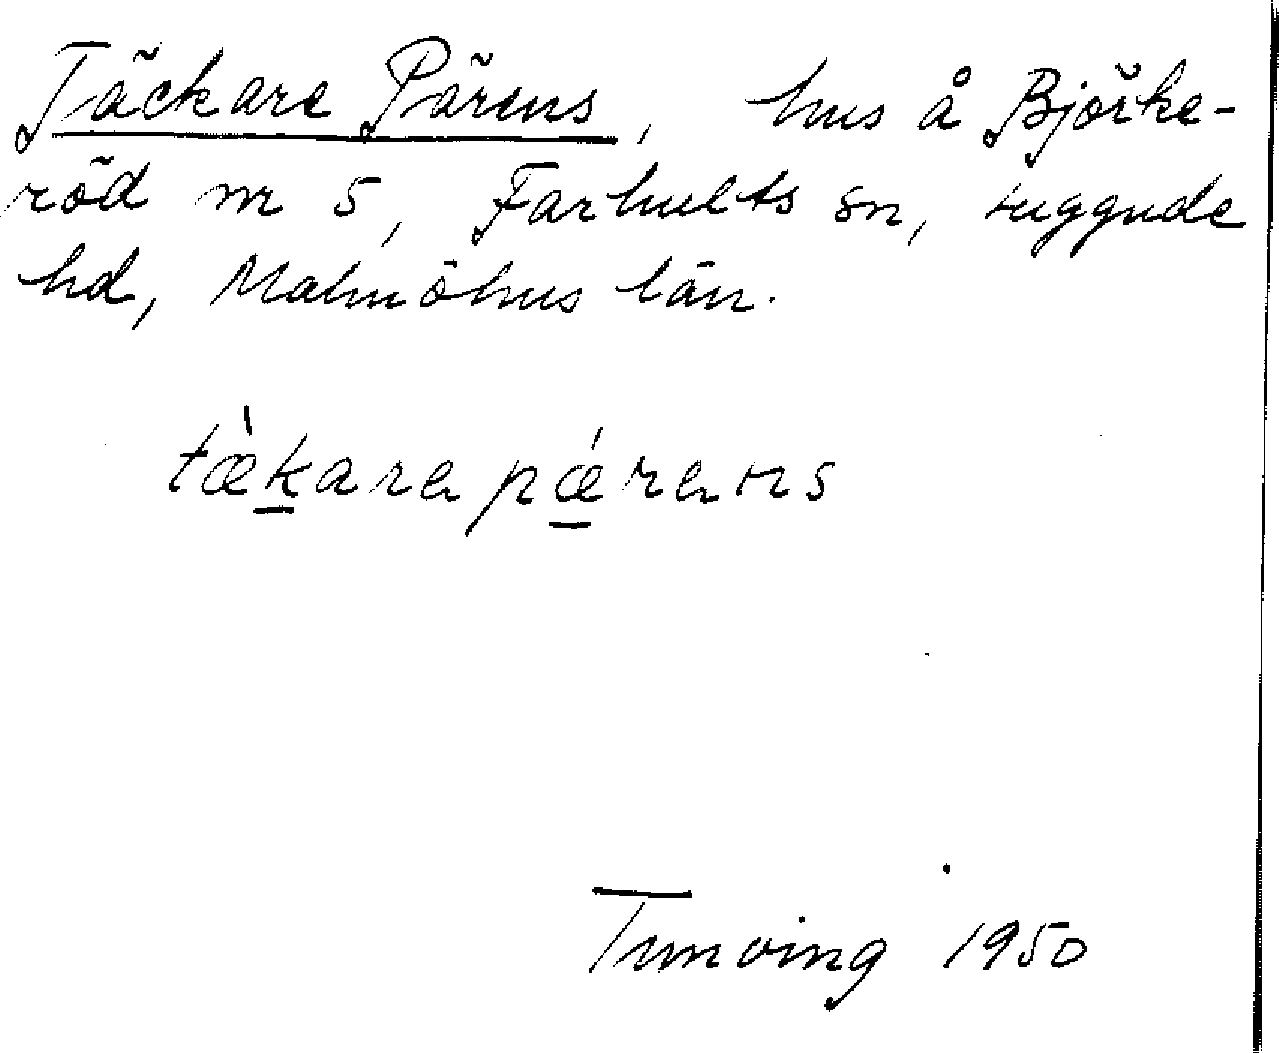 Täckare Pärens, hus å Björke-
röd nr 5, Farhults sn, Luggude
hd, Malmöhus län.
tæ̀karepǽrens
Tunving 1950